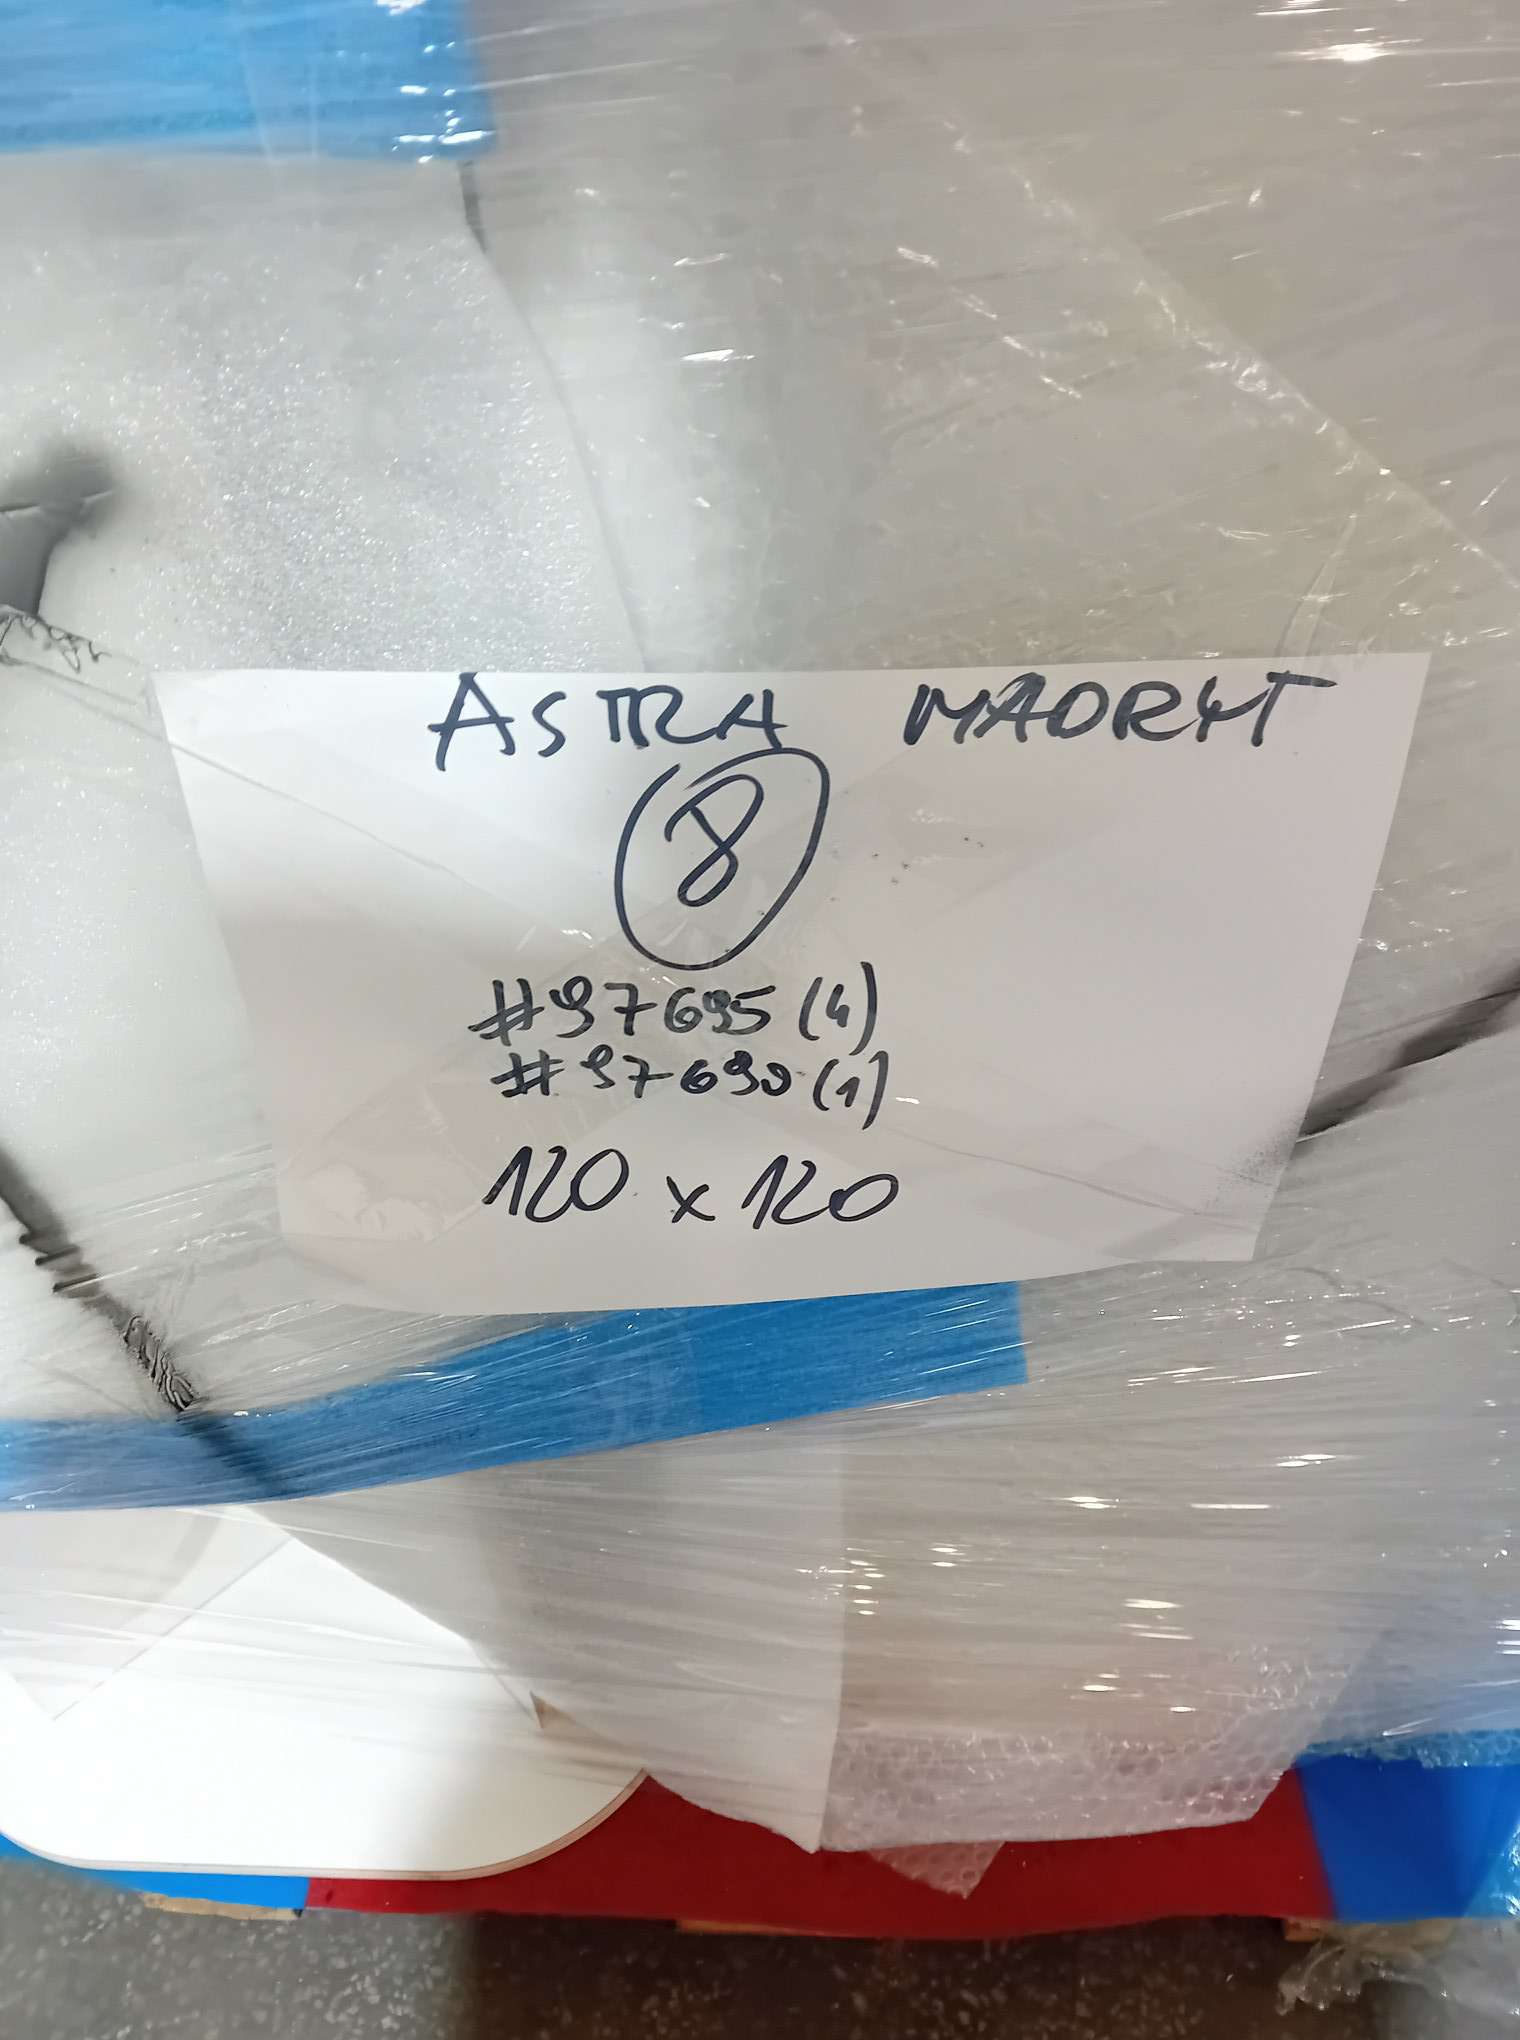 ASTRA MADRYT
8
#97695 (4)
#97690 (1)
120 x 120